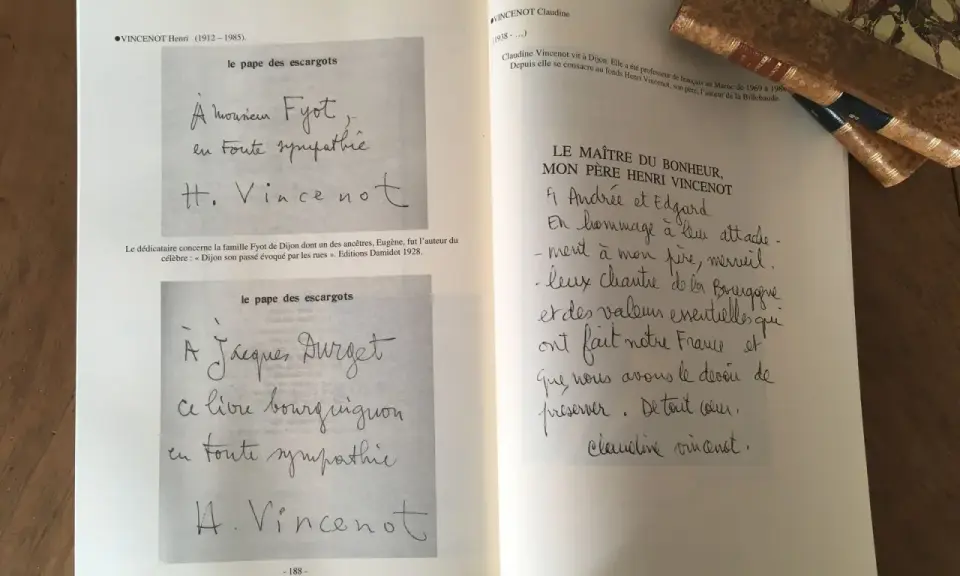 ●VINCENOT Henri (1912 – 1985).
le pape des escargots
À monsieur Fyot,
en toute sympathie
H. Vincenot
Le dédicataire concerne la famille Fyot de Dijon dont un des ancêtres, Eugène, fut l'auteur du
célèbre : « Dijon son passé évoqué par les rues ». Editions Damidot 1928.
le pape des escargots
À Jacques Durget
ce livre bourguignon
en toute sympathie
H. Vincenot
- 188 -
●VINCENOT Claudine
(1938 - ...)
Claudine Vincenot vit à Dijon. Elle a été professeur de français au Maroc de 1969 à
Depuis elle se consacre au fonds Henri Vincenot, son père, l'auteur de la Billebaude.
LE MAÎTRE DU BONHEUR,
MON PÈRE HENRI VINCENOT
À Andrée et Edgard
En hommage à leur attache-
-ment à mon père, merveil.
-leux chantre de la Bourgogne
et des valeurs essentielles qui
ont fait notre France et
que nous avons le devoir de
préserver. De tout cœur.
Claudine Vincenot.